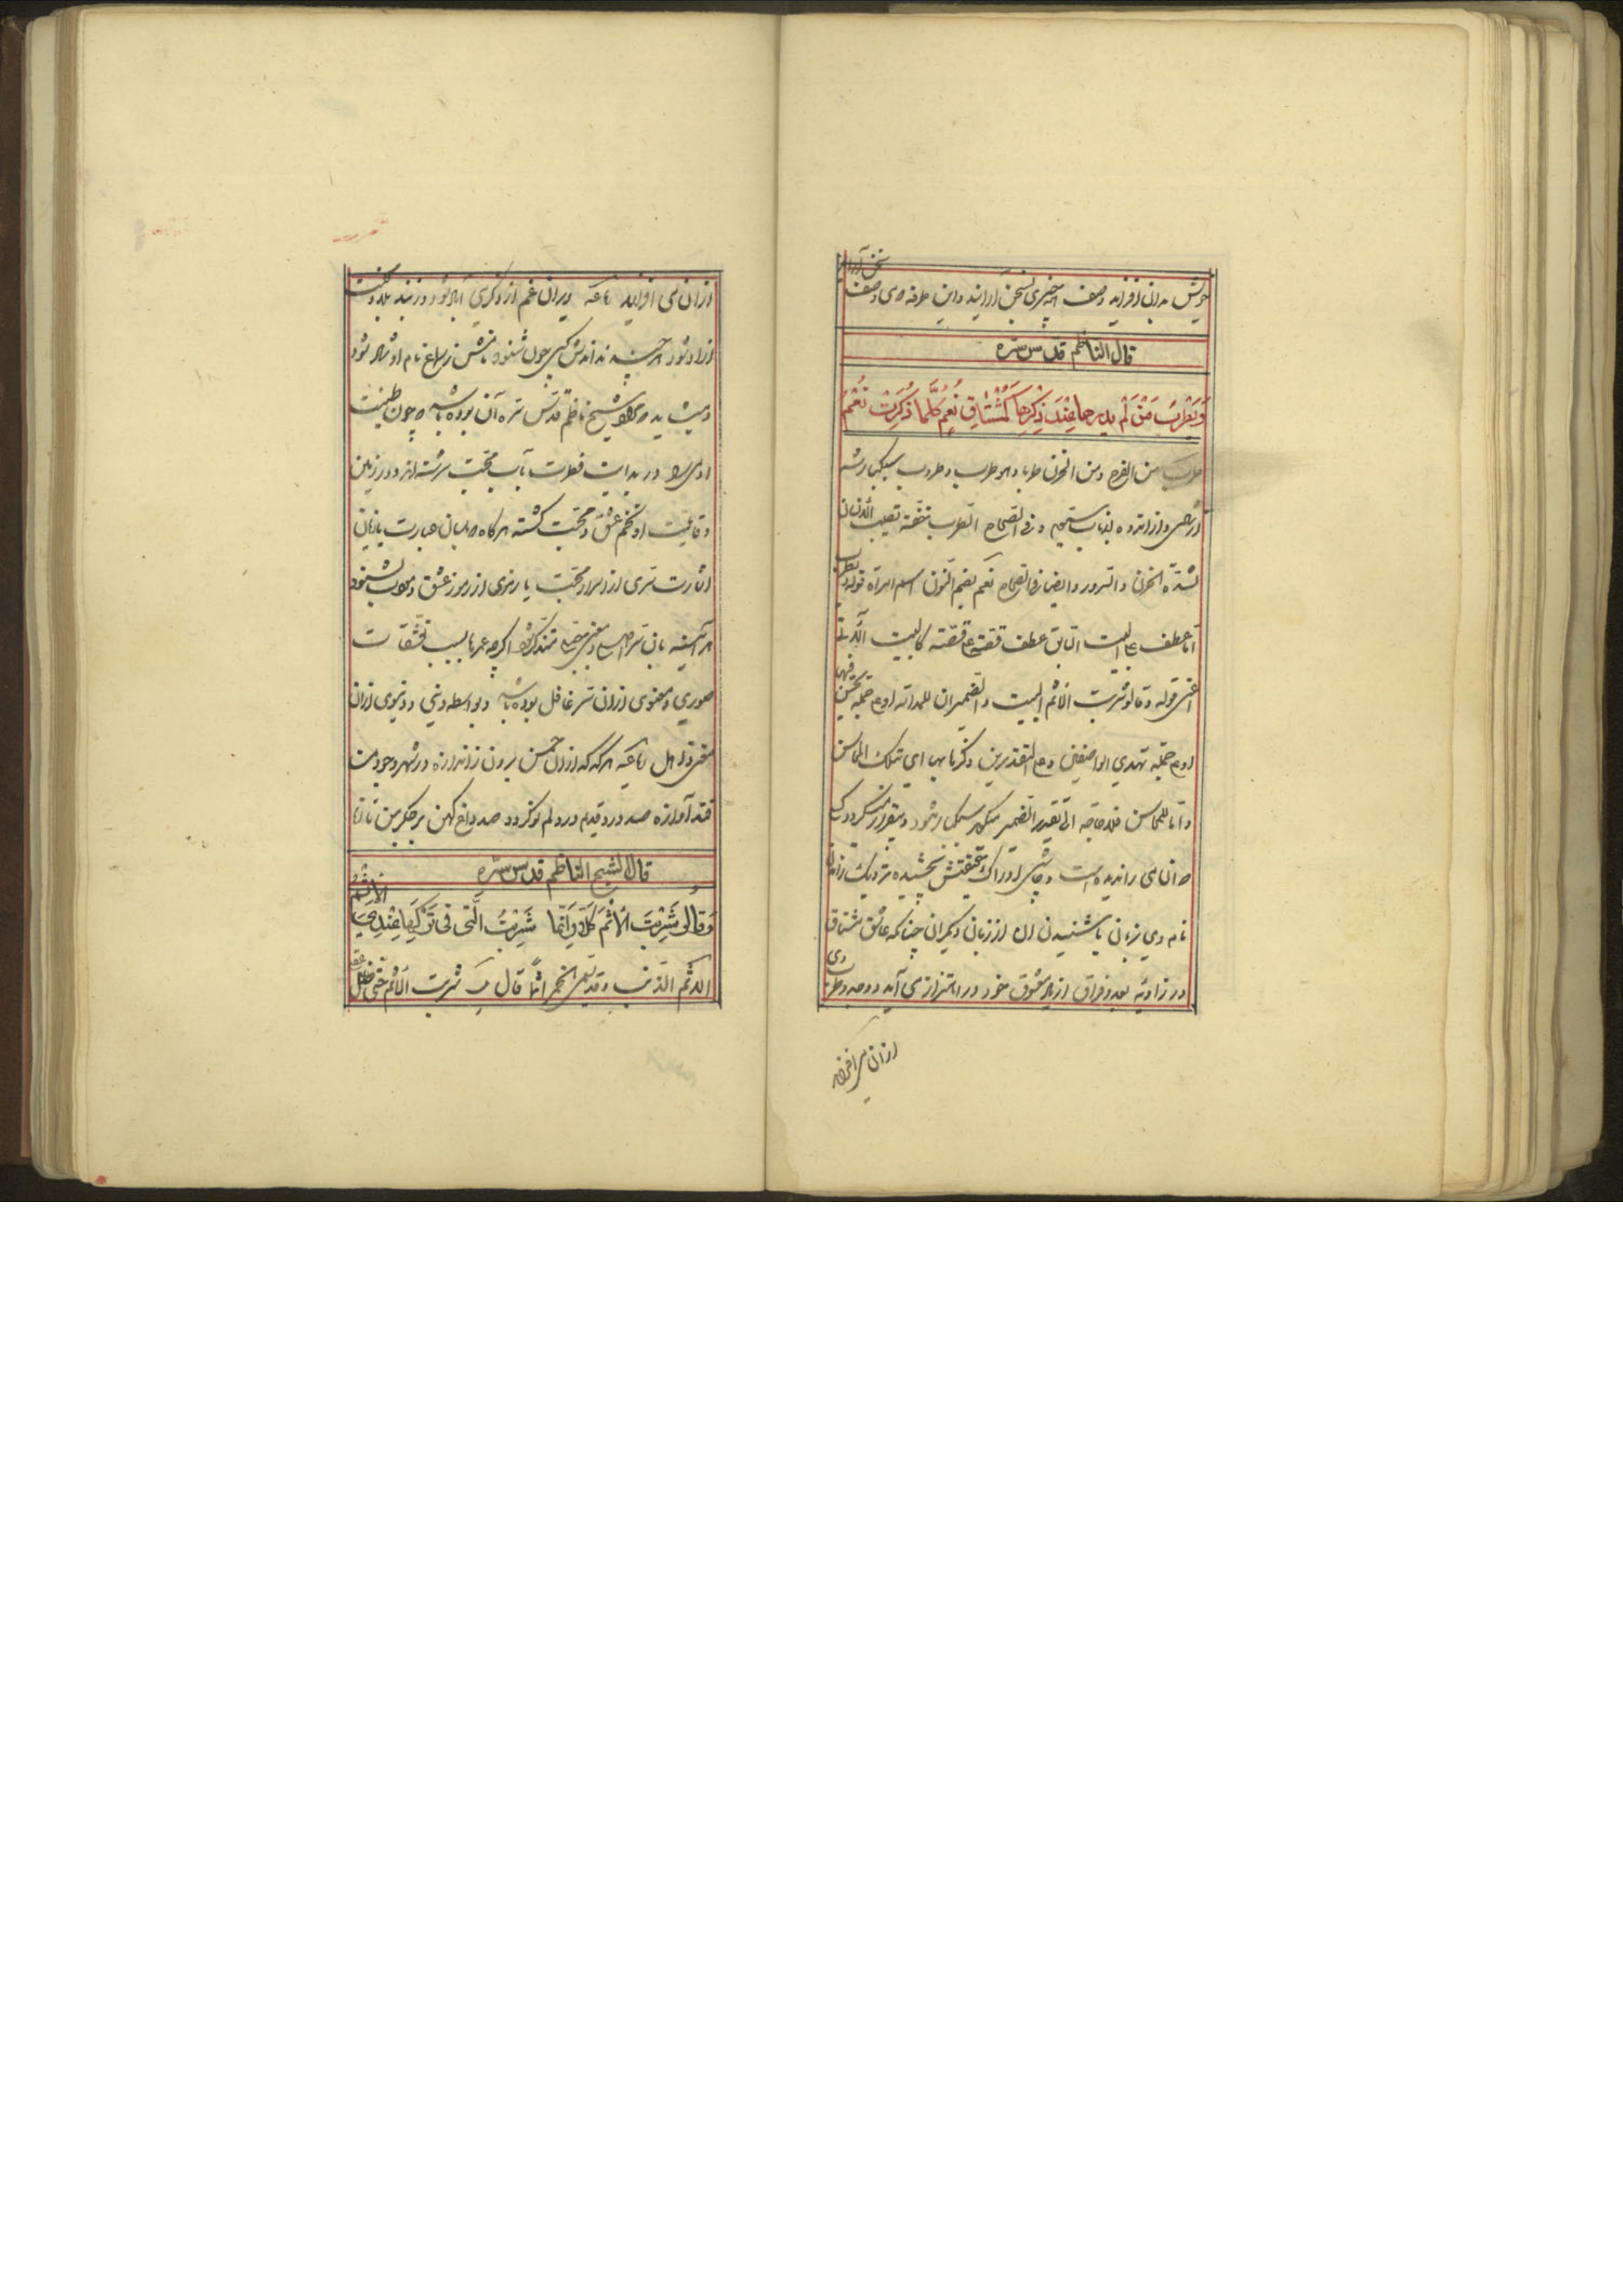 خویش بدان افزاید وصف هر چیزی بسخن آرایند واین طرفه که وی وصف سخن آراید
قال الناظم قدس سره
وَیَطْرَبُ مَنْ لَمْ یدرها عِنْدَ ذِکْرِها کَمُشْتاقِ نُعْمٍ کُلَّما ذُکِرَتْ نُعْمُ
طرب من الفرح ومن الحزن طربا وهو طرب وطروب سبکبار شد
از شادی واز اندوه وفی الصحاح الطرب خفة تصیب الانسان
لشدّة الحزن والسرور وایضا فی الصحاح نعم بضم النون اسم امراة قوله ویطرب
امّا عطف علی البیت السابق عطف قصة علی قصة کالبیت الآتی
اعنی قوله وقالوا شربت الاثم البیت والضمیران للمدامة او علی جملة تحسن فیها
او علی جملة تهدی الواصفین وعلی التقدیرین ذکرنا بها ای بتلک المحاسن
وامّا للمحاسن فلا حاجة الی تقدیر الضمیر میگوید سبکبار شود وبیقرار گردد
هر آن می را ندیده است وچاشنی ادراک حقیقتش نچشیده نزدیک راندن
نام وی بزبان یا شنیدن آن از زبان دیگران چنانکه عاشق مشتاق
در زاویه بعد وفراق از نام معشوق خود در اهتزاز می آید ووجد وطرب وی
ازان می افزاید
ازان می افزاید رباعیه ویران غم از ذکر تو آباد شود وز بند بلا ومحنت
آزاد شود هر چند نداند کسی چون شنود نامش ز سماع نام او شاد شود
ومیشاید که مراد شیخ ناظم قدس سره آن بوده باشد که چون طینت
آدمی را در بدایت فطرت بآب محبت سرشته اند ودر زمین
وقابلیت او تخم عشق ومحبت کشته هر گاه که بلسان عبارت یا زبان
اشارت سری از اسرار محبت یا رمزی از رموز عشق ومودت بشنود
هر آینه بان سر اصلی ومعنی جبلی متذکر شود اگر چه عمرها بسبب تعشقات
صوری ومعنوی ازان سر غافل بوده باشد وبواسطه دینی ودنیوی ازان
معنی ذاهل رباعیه هر گه که ازان حسن برون ز اندازه در شهر وجود من
فتد آوازه صد درد قدیم در دلم نو گردد صد داغ کهن بر جگر من تازه
قال الشیخ الناظم قدس سره
وَقالُوا شَرِبْتَ الإثْمَ کَلّا وَإنَّما شَرِبْتُ الَّتی فی تَرْکِها عِنْدِیَ الإثْمُ
الاثم الذنب وقد تسمی الخمر اثما قال شربت الاثم حتی ضل عقلی